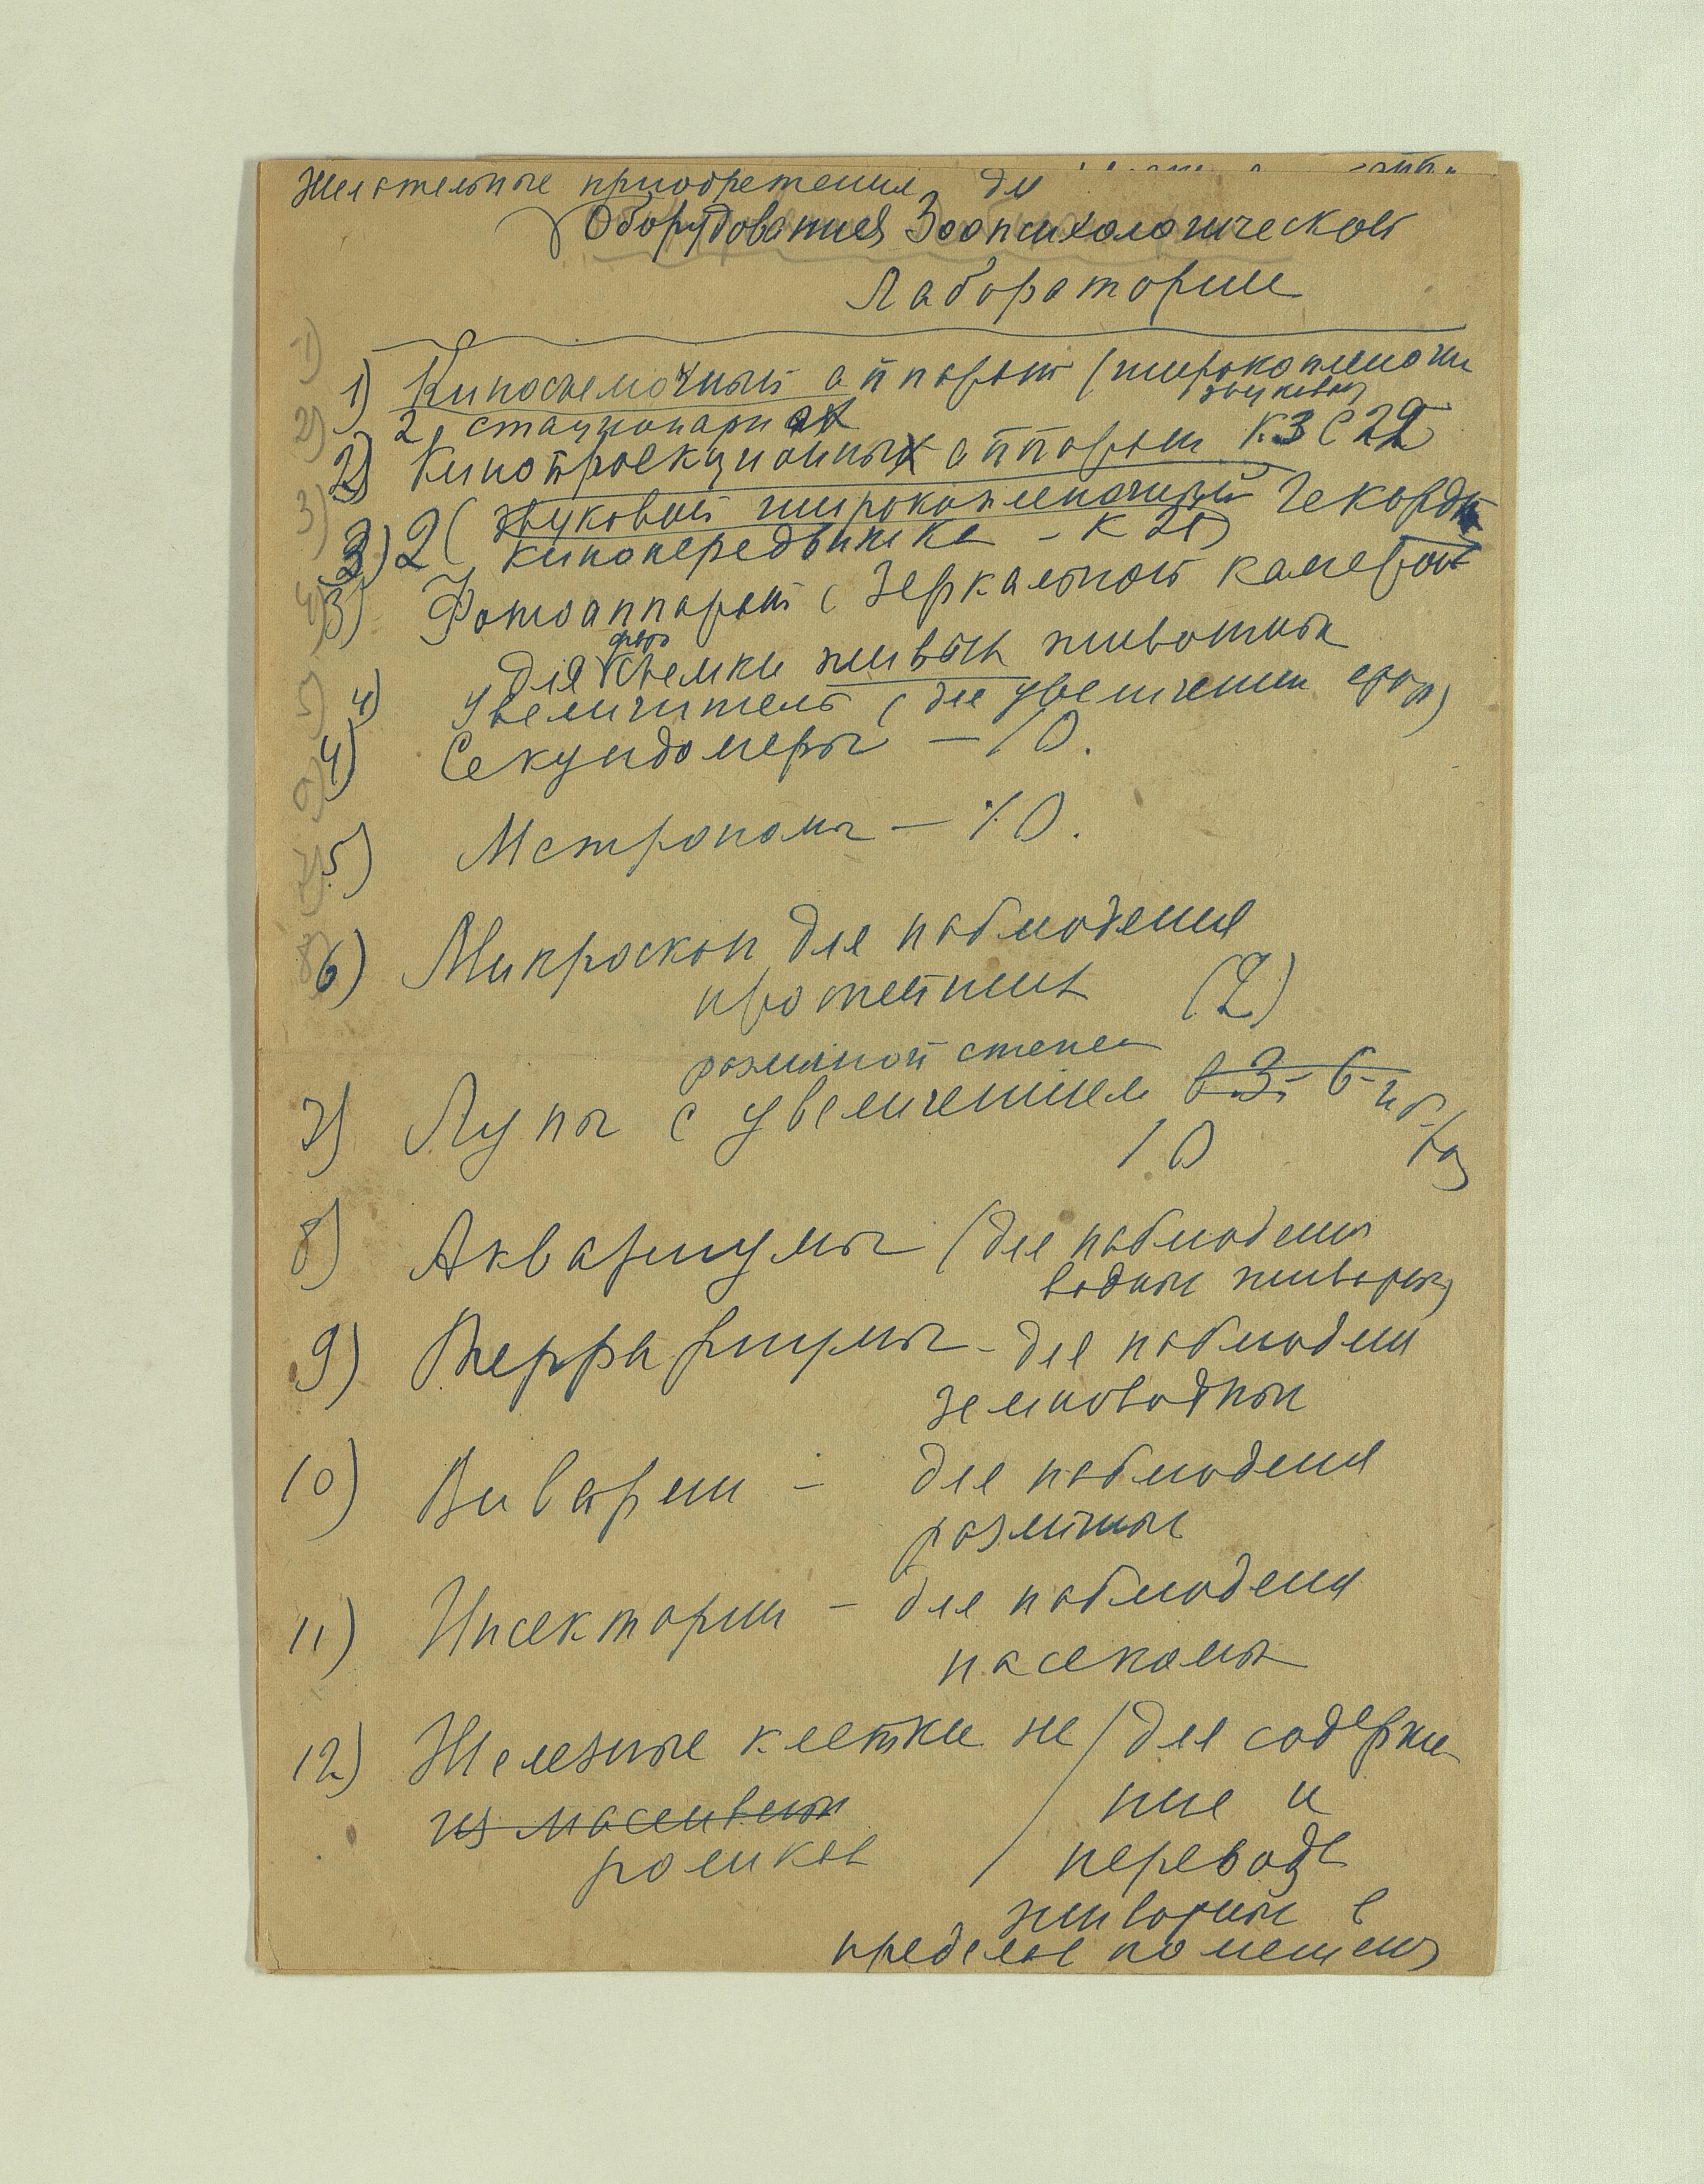 Желательные приобретения для
Оборудования Зоопсихологической
Лаборатории
1) Киносъемочный аппарат (широкопленочн
звуковой
2, стационарн
2) Кинопроекционных аппарат КЗС 22
3) 2 ( звуковой широкопленочный Гекорд
кинопередвижка - К 25)
3) Фотоаппарат (Зеркальной камерой
фото
для съемки живых животных
4) Увеличитель (для увеличения
4) Секундомеры - 10.
5) Метрономы - 10.
6) Микроскоп для наблюдения
простейших (2)
различной степен
7) Лупы с увеличением в 3- 6-
10
8) Аквариумы (для наблюдения
водных животных)
9) Террариумы - для наблюден
земноводных
10) Виварии - для наблюдения
различных
11) Инсектарии - для наблюдения
насекомых
12) Железные клетки на / для содержа
из массивных ния и
роликах перевода
животных в
пределах помещения